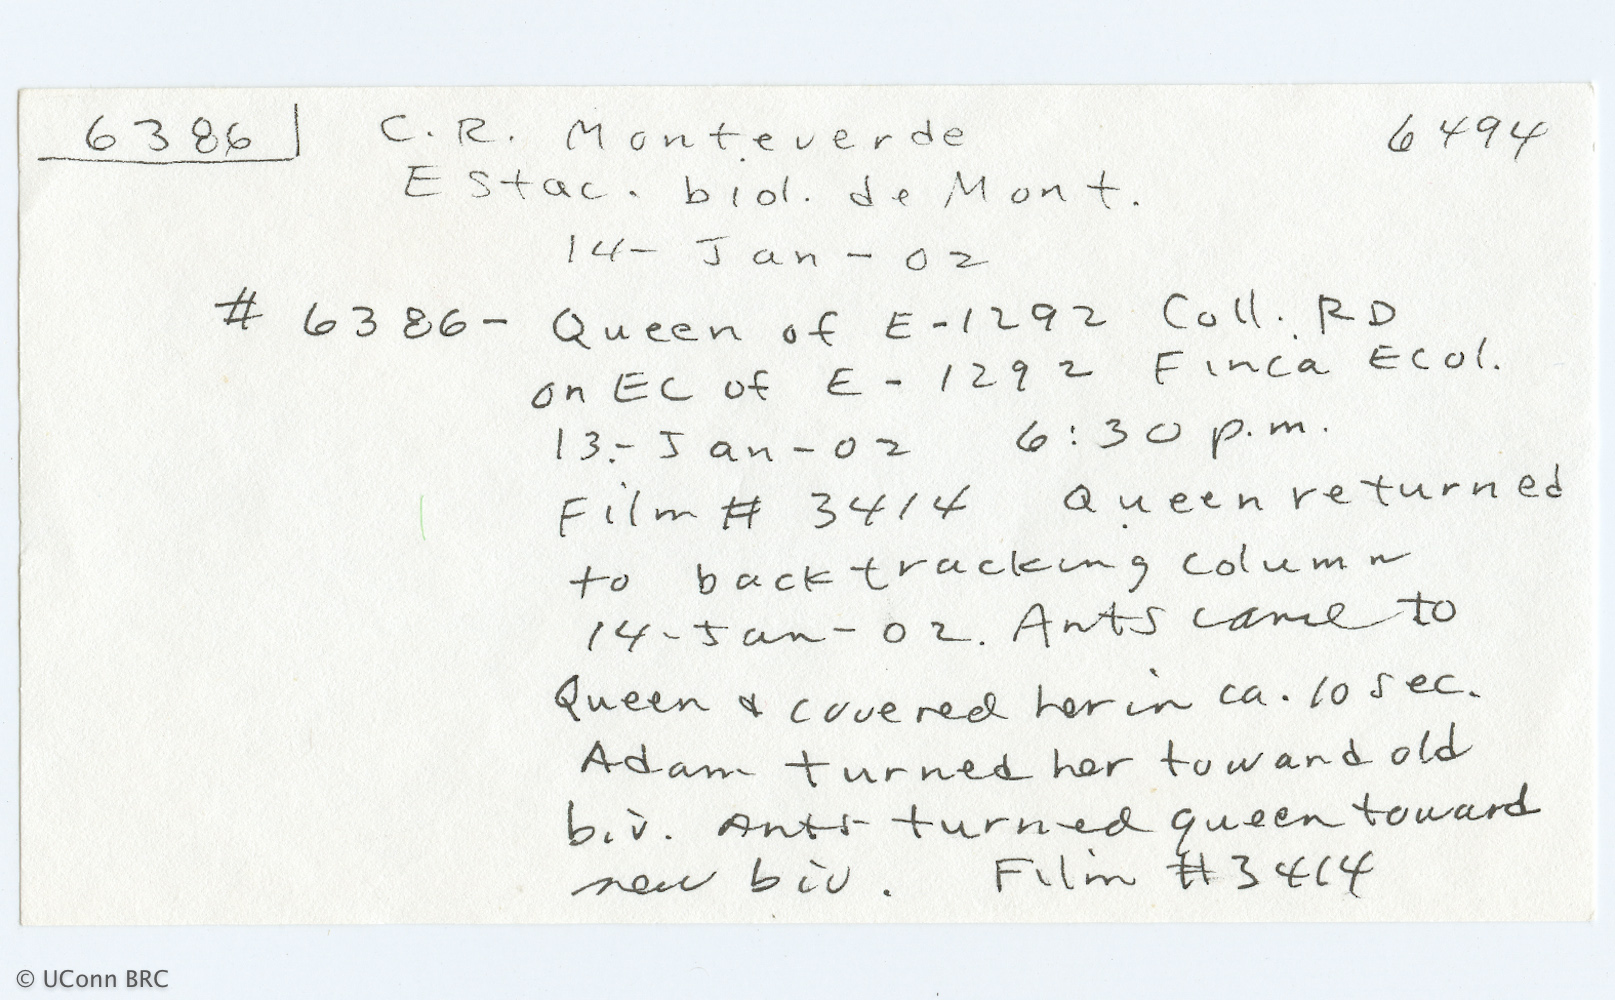 6386 C.R. Monteverde 6494
Estac. biol. de Mont.
14-Jan-02
# 6386- Queen of E-1292 Coll. RD
on EC of E-1292 Finca Ecol.
13-Jan-02 6:30 p.m.
Film # 3414 Queen returned
to backtracking column
14-Jan-02. Ants came to
Queen & covered her in ca. 10 sec.
Adam turned her toward old
biv. Ants turned queen toward
new biv. Film #3414
© UConn BRC